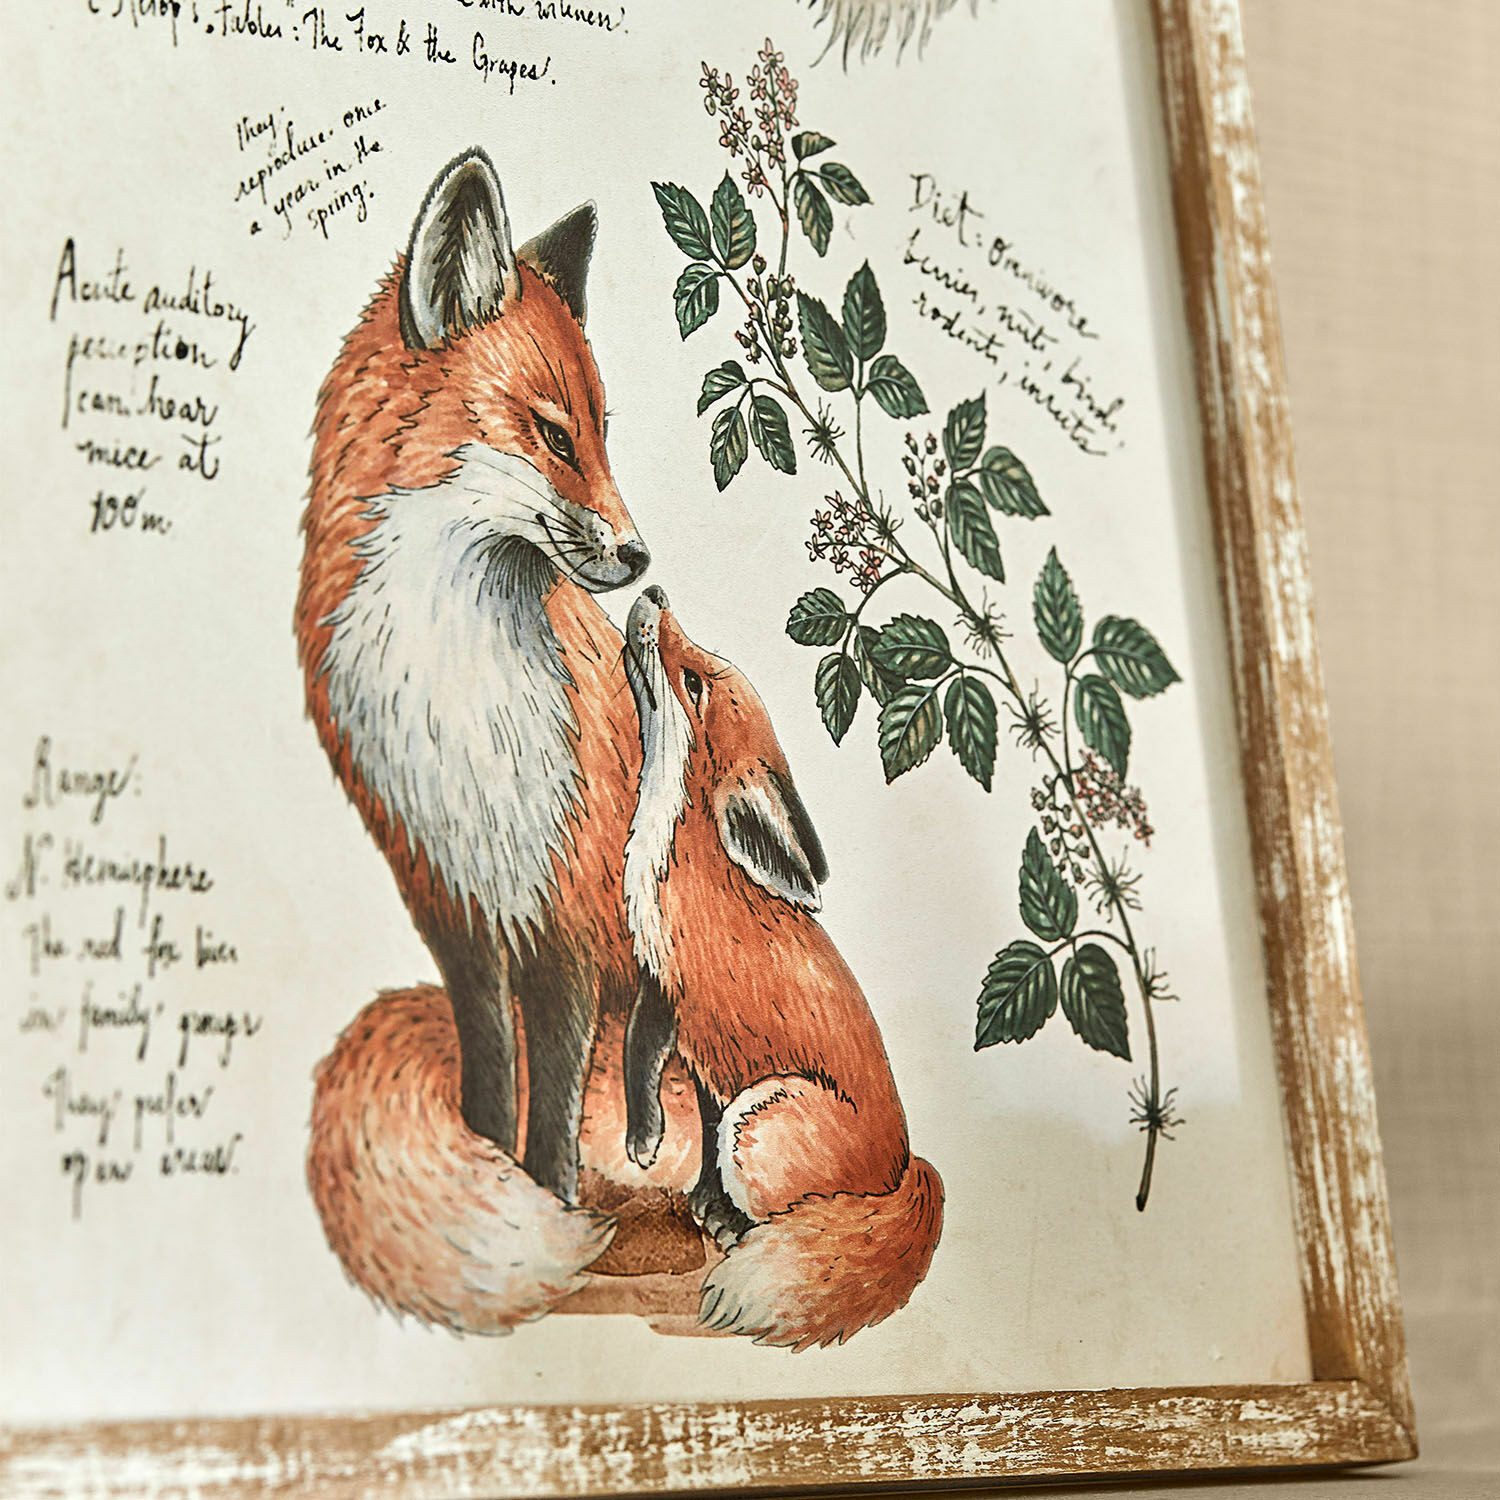 Aesop's Fables: The Fox & the Grapes.
They
reproduce once
a year in the
spring.
Acute auditory
perception
can hear
mice at
100m.
Diet: Omnivore
berries, nuts, birds,
rodents, insects
Range:
N. Hemisphere
The red fox lives
in family groups
They prefer
open areas.